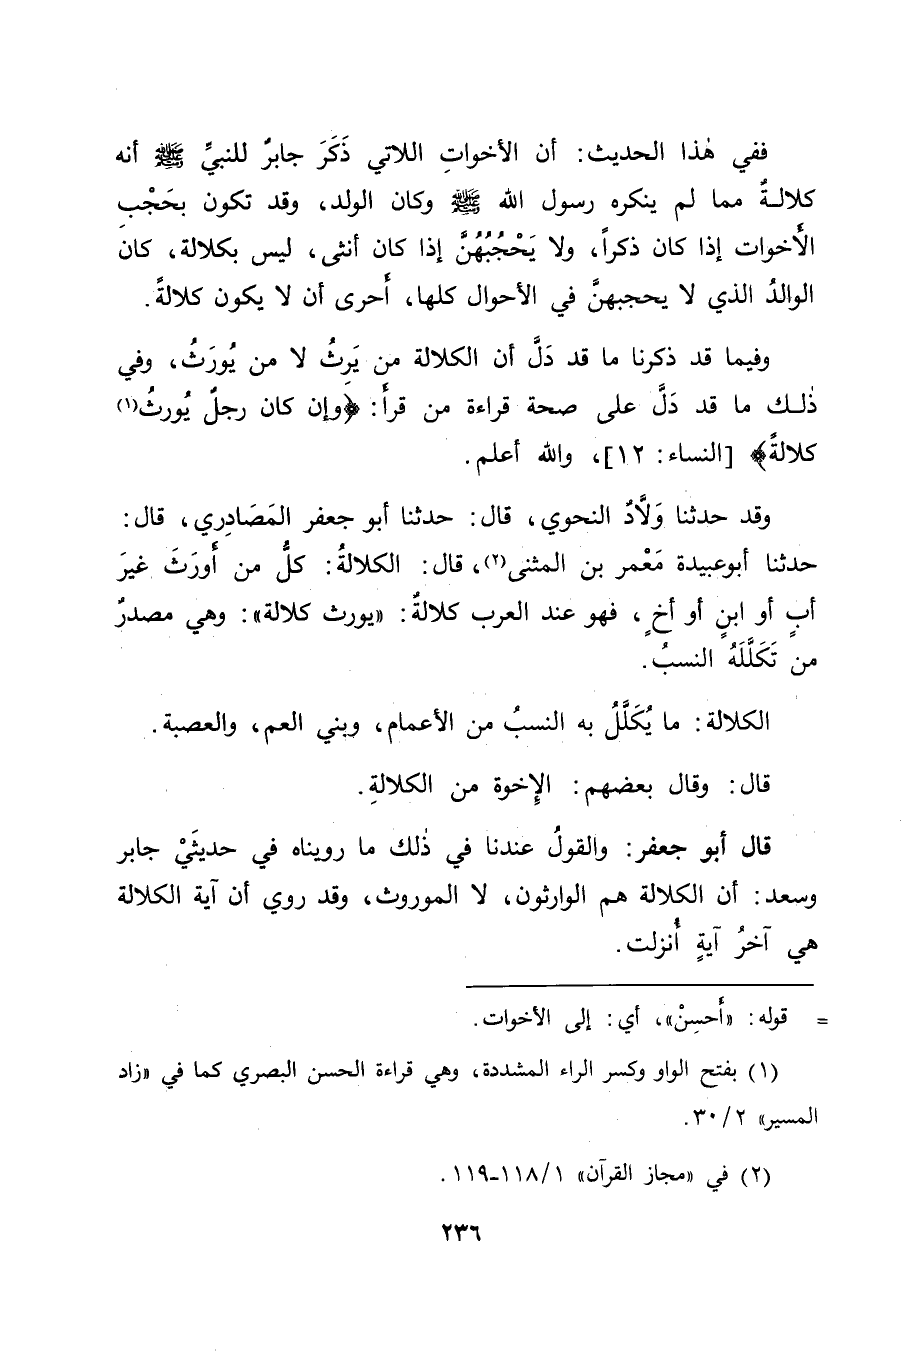 ففي هٰذا الحديث: أن الأخواتِ اللاتي ذَكَرَ جابرٌ للنبيِّ ﷺ أنه
كلالـةٌ مما لم ينكره رسول الله ﷺ وكان الولد، وقد تكون بحَجْبِ
الأَخوات إذا كان ذكراً، ولا يَحْجُبُهُنَّ إذا كان أنثى، ليس بكلالة، كان
الوالدُ الذي لا يحجبهنَّ في الأحوال كلها، أَحرى أن لا يكون كلالةً.
وفيما قد ذكرنا ما قد دَلَّ أن الكلالة من يَرِثُ لا من يُورَثُ، وفي
ذٰلـك ما قد دَلَّ على صحة قراءة من قرأَ: ﴿وإن كان رجلٌ يُورثُ(١)
كلالةً﴾ [النساء: ١٢]، والله أعلم.
وقد حدثنا وَلَّادٌ النحوي، قال: حدثنا أبو جعفر المَصَادِري، قال:
حدثنا أبوعبيدة مَعْمر بن المثنى(٢)، قال: الكلالةُ: كلُّ من أَورَثَ غيرَ
أبٍ أو ابنٍ أو أخٍ، فهو عند العرب كلالةٌ: «يورث كلالة»: وهي مصدرٌ
من تَكَلَّلَهُ النسبُ.
الكلالة: ما يُكَلَّلُ به النسبُ من الأعمام، وبني العم، والعصبة.
قال: وقال بعضهم: الإِخوة من الكلالةِ.
قال أبو جعفر: والقولُ عندنا في ذٰلك ما رويناه في حديثَيْ جابر
وسعد: أن الكلالة هم الوارثون، لا الموروث، وقد روي أن آية الكلالة
هي آخرُ آيةٍ أُنزلت.
= قوله: «أَحسِنْ»، أي: إلى الأخوات.
(١) بفتح الواو وكسر الراء المشددة، وهي قراءة الحسن البصري كما في «زاد
المسير» ٣٠/٢.
(٢) في «مجاز القرآن» ١١٨/١-١١٩.
٢٣٦